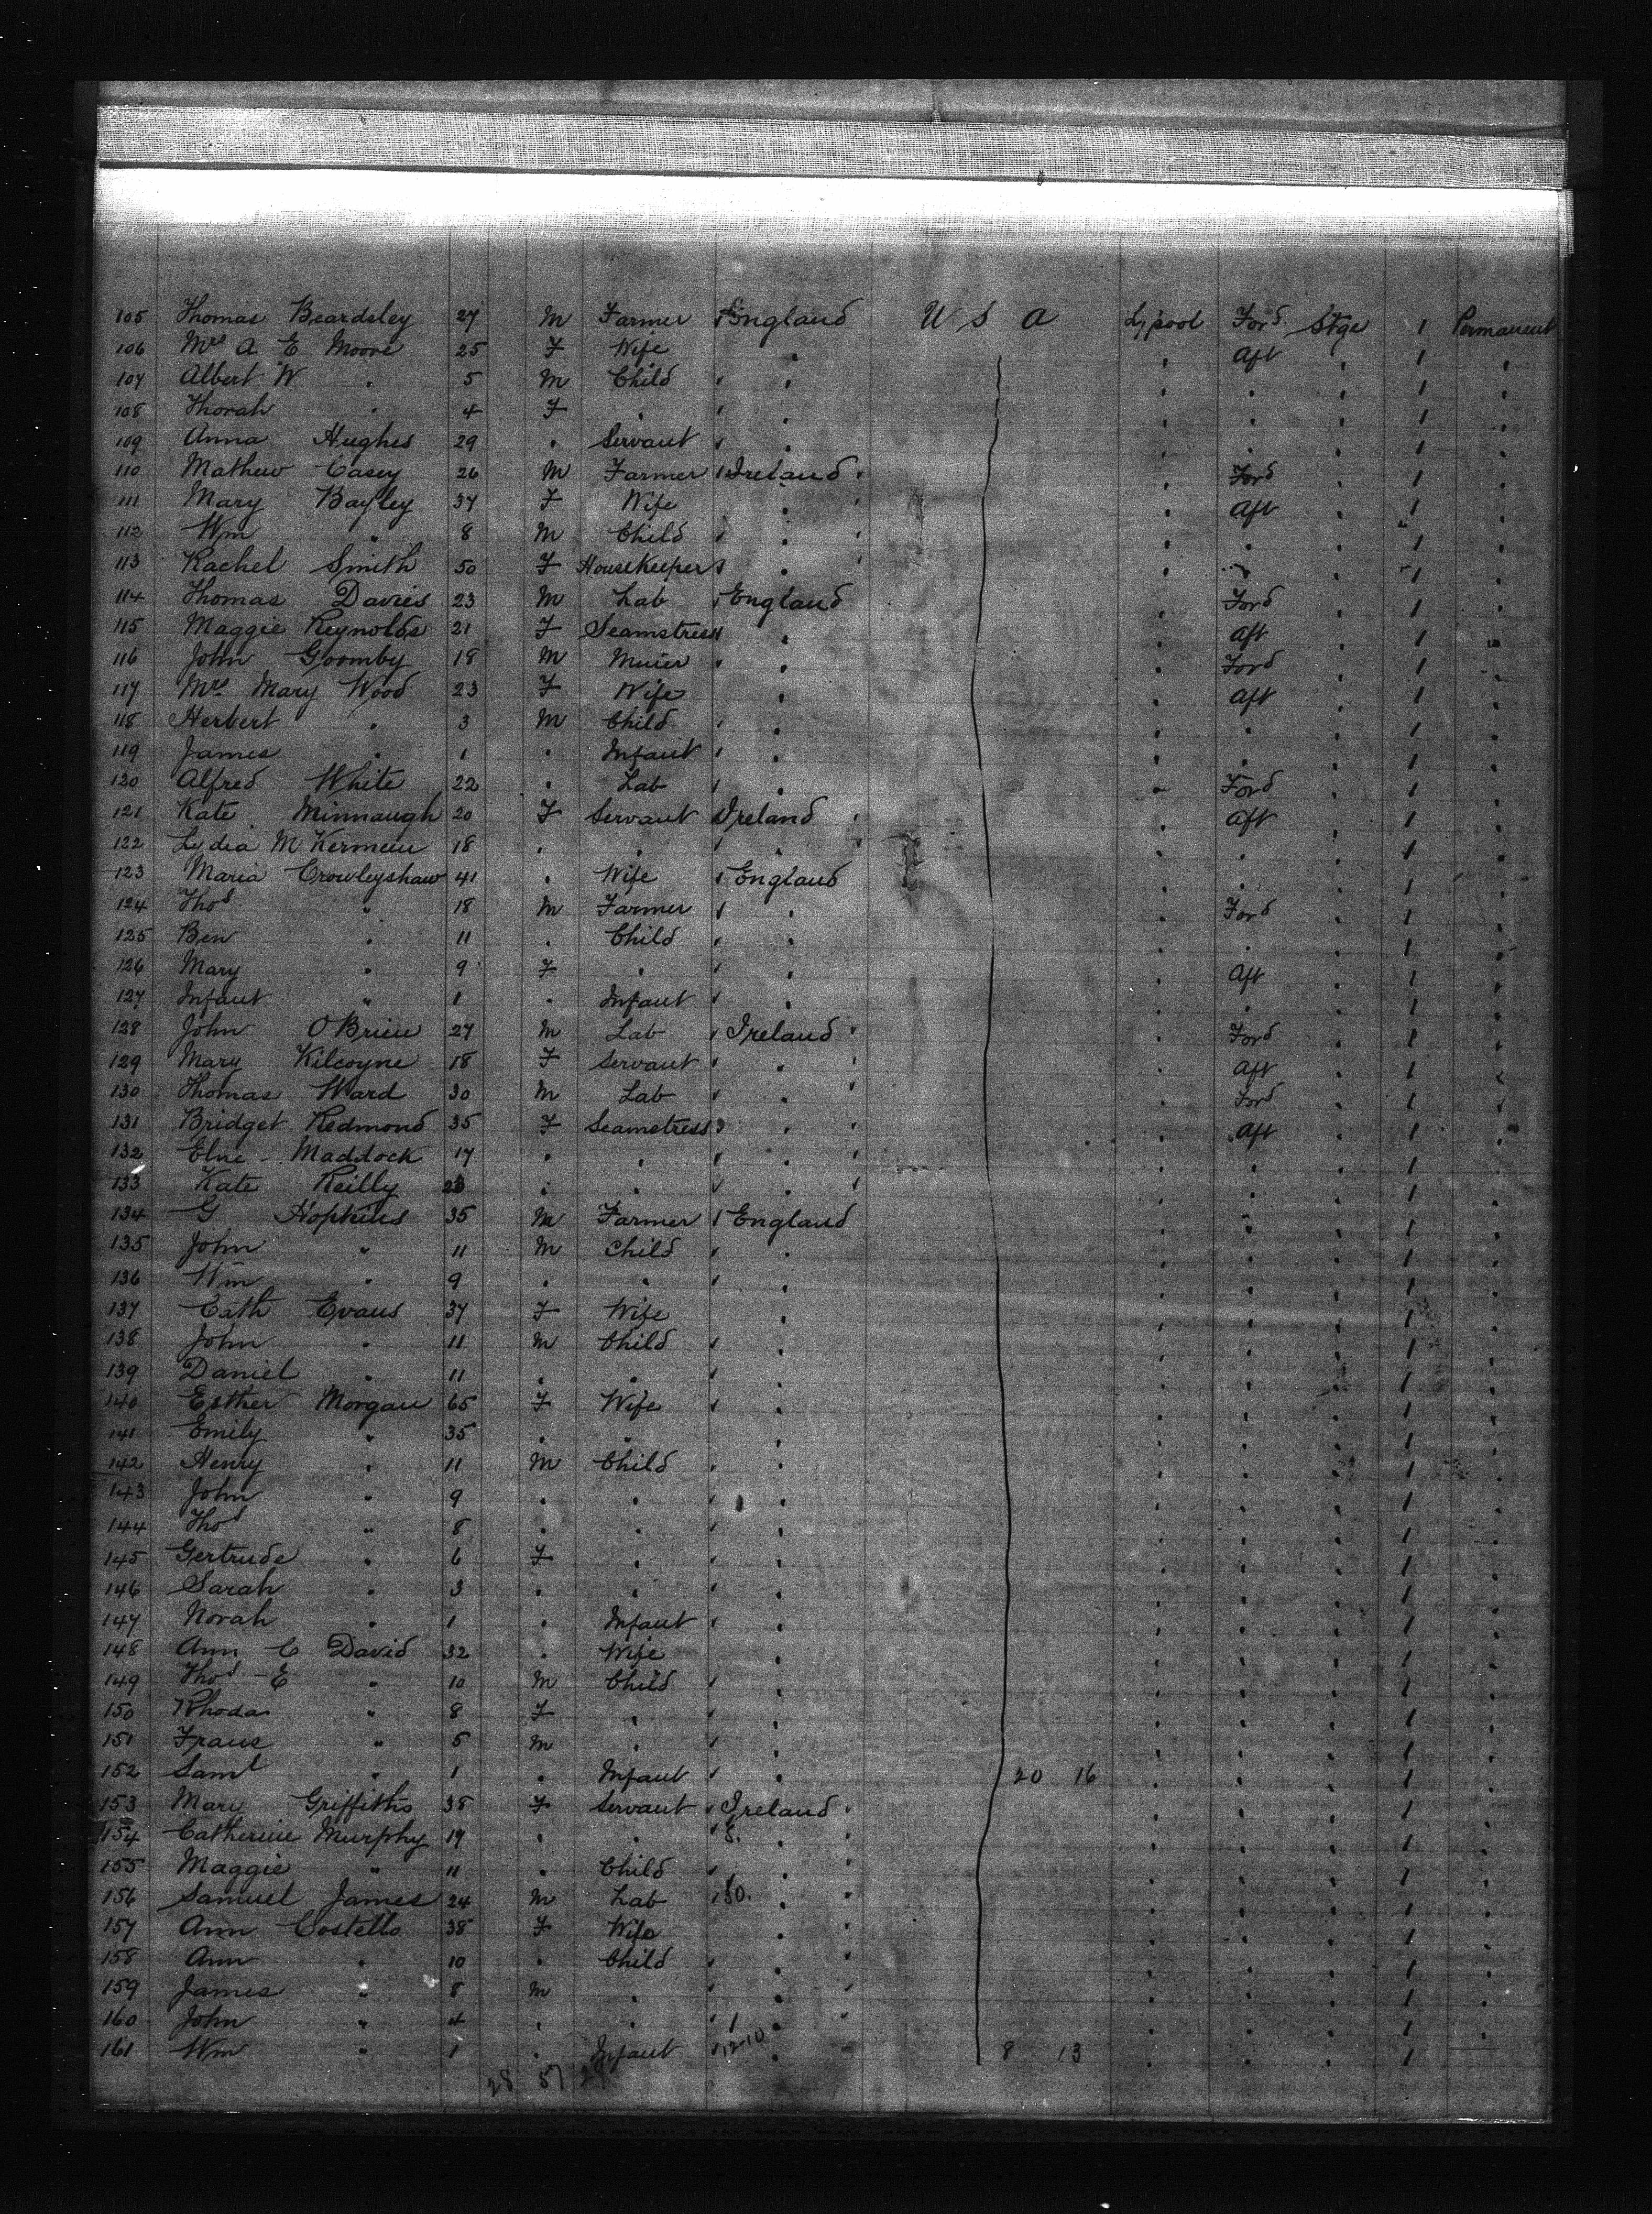 105 Thomas Beardsley 27 M Farmer England U S A L'pool Ford Stge 1 Permanent
106 Mrs A E Moore 25 F Wife " Aft " 1 "
107 Albert W " 5 M Child " " " " " 1 "
108 Thorah " 4 F " " " " " " 1 "
109 Anna Hughes 29 " Servant " " " " " 1 "
110 Mathew Casey 26 M Farmer Ireland " Ford " 1 "
111 Mary Bayley 37 F Wife " " Aft " 1 "
112 Wm " 8 M Child " " " " " 1 "
113 Rachel Smith 50 F Housekeeper " " " " 1 "
114 Thomas Davies 23 M Lab England " Ford " 1 "
115 Maggie Reynolds 21 F Seamstress " " Aft " 1 "
116 John Goomby 18 M Miner " " Ford " 1 "
117 Mrs Mary Wood 23 F Wife " " Aft " 1 "
118 Herbert " 3 M Child " " " " " 1 "
119 James " 1 " Infant " " " " " 1 "
120 Alfred White 22 " Lab " " " Ford " 1 "
121 Kate Minnaugh 20 F Servant Ireland " Aft " 1 "
122 Lydia 18 " " " " " " " 1 "
123 Maria Crowleyshaw 41 " Wife England " " " 1 "
124 Thos " 18 M Farmer " " " Ford " 1 "
125 Ben " 11 " Child " " " " " 1 "
126 Mary " 9 F " " " " Aft " 1 "
127 Infant " 1 " Infant " " " " " 1 "
128 John O'Brien 27 M Lab Ireland " Ford " 1 "
129 Mary Kilcoyne 18 F Servant " " " Aft " 1 "
130 Thomas Ward 30 M Lab " " " Ford " 1 "
131 Bridget Redmond 35 F Seamstress " " Aft " 1 "
132 Maddock 17 " " " " " " " 1 "
133 Kate Reilly " " " " " " " 1 "
134 G Hopkins 35 M Farmer England " " " 1 "
135 John " 11 M Child " " " " " 1 "
136 Wm " 9 " " " " " " " 1 "
137 Cath Evans 37 F Wife " " " " 1 "
138 John " 11 M Child " " " " " 1 "
139 Daniel " 11 " " " " " " " 1 "
140 Esther Morgan 65 F Wife " " " " " 1 "
141 Emily " 35 " " " " " " 1 "
142 Henry " 11 M Child " " " " " 1 "
143 John " 9 " " " " " " " 1 "
144 Thos " 8 " " " " " " " 1 "
145 Gertrude " 6 F " " " " " " 1 "
146 Sarah " 3 " " " " " " " 1 "
147 Norah " 1 " Infant " " " " " 1 "
148 Ann C David 32 " Wife " " " " 1 "
149 Thos E " 10 M Child " " " " " 1 "
150 Rhoda " 8 F " " " " " " 1 "
151 Frans " 5 M " " " " " " 1 "
152 Saml " 1 " Infant " " 20 16 " " " 1 "
153 Mary Griffiths 38 F Servant Ireland " " " 1 "
154 Catherine Murphy 19 " " 8. " " " " 1 "
155 Maggie " 11 " Child " " " " " 1 "
156 Samuel James 24 M Lab 10. " " " " 1 "
157 Ann Costello 38 F Wife " " " " 1 "
158 Ann " 10 " Child " " " " " 1 "
159 James " 8 M " " " " " " 1 "
160 John " 4 " " " " " " " 1 "
161 Wm " 1 " Infant 12-10 " 8 13 " " " 1
28 57